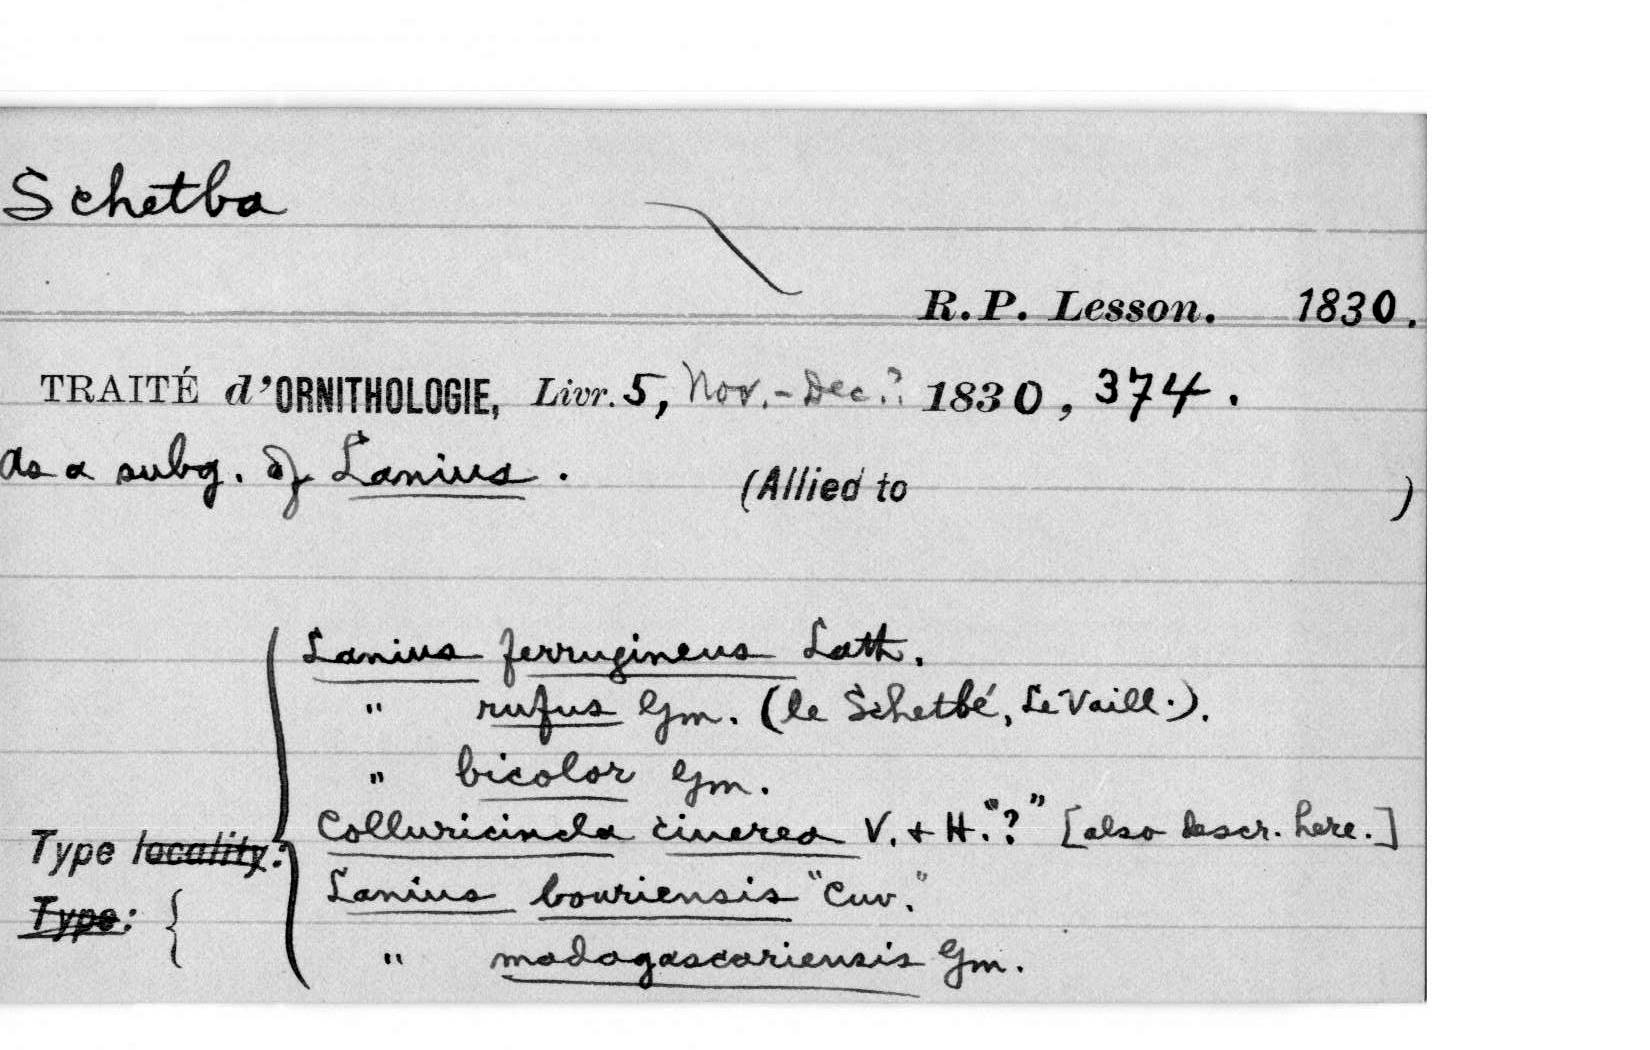 Schetba
R.P. Lesson. 1830.
TRAITÉ d'ORNITHOLOGIE, Livr. 5, Nov.-Dec.? 1830, 374.
As a subg. of Lanius. (Allied to )
Lanius ferrugineus Lath.
" rufus Gm. (le Schetbé, Le Vaill.).
" bicolor Gm.
Colluricincla cinerea V. + H. "?" [also descr. here.]
Type locality:
Lanius bouriensis "Cuv."
Type: {
" madagascariensis Gm.